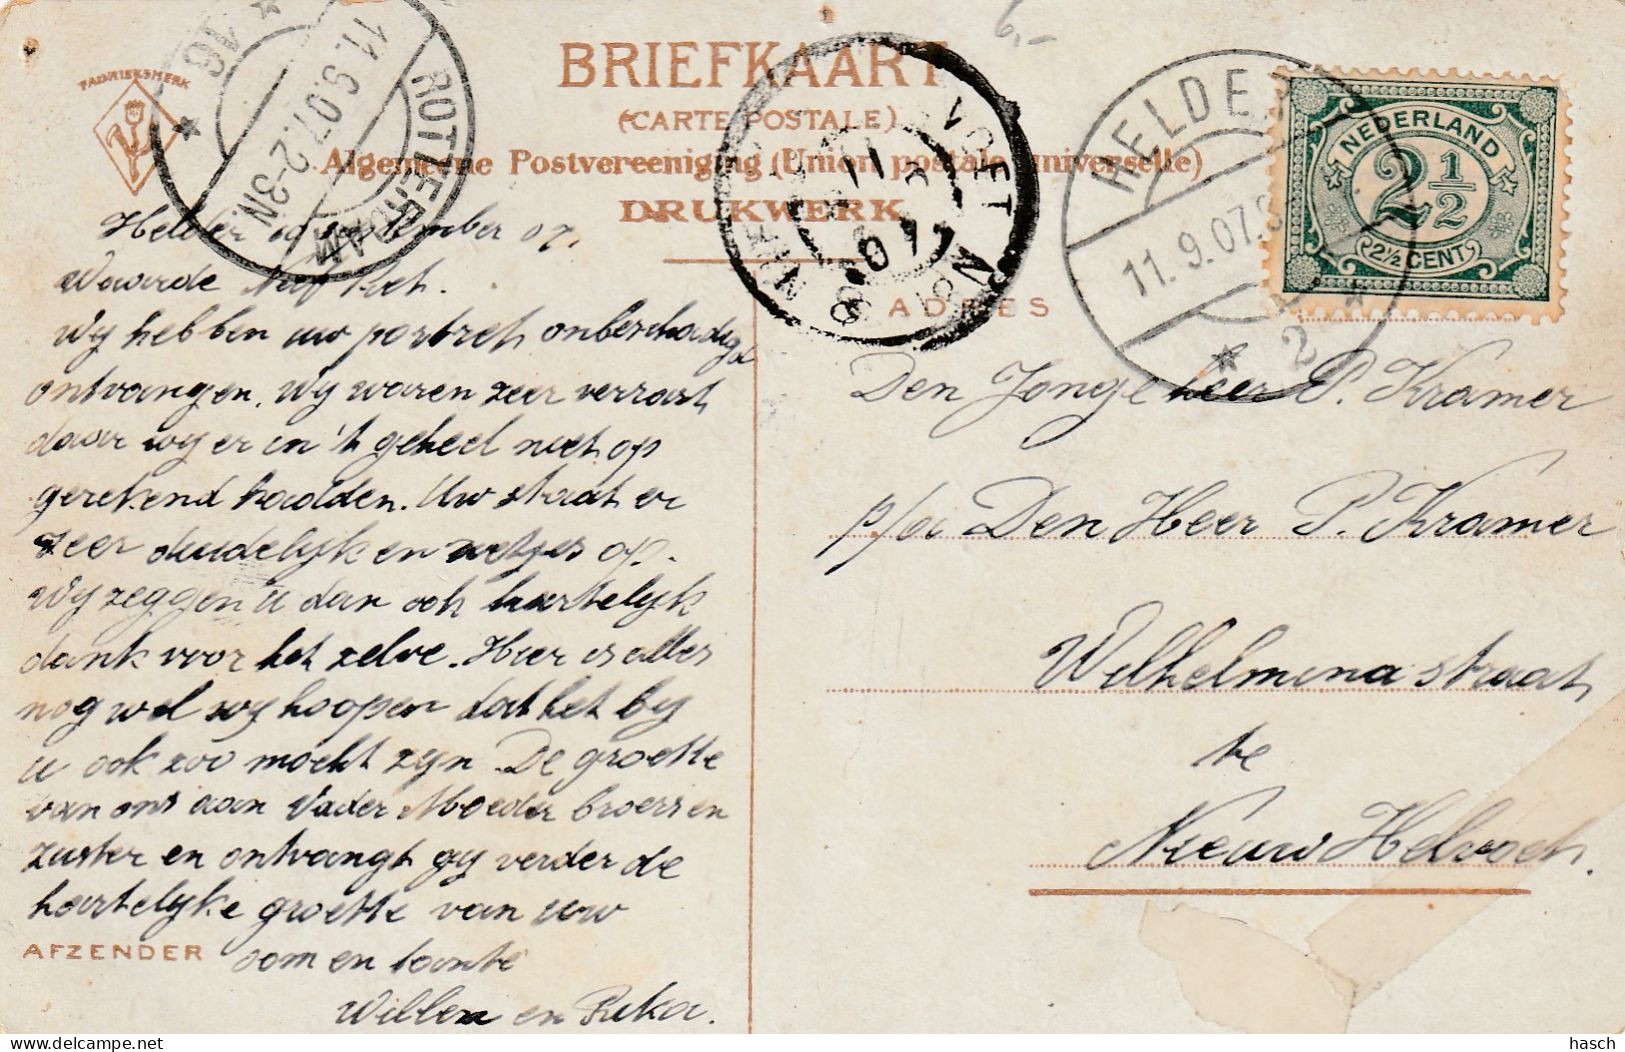 6,-
BRIEFKAART
(CARTE POSTALE)
Algemeene Postvereeniging (Union postale universelle)
DRUKWERK
FABRIEKSMERK
ROTTERDAM
11.9.07.2-3N.
16
HELDER
11.9.07.
2
NEDERLAND
2 1/2
2½ CENT
Helder 10 September 07.
Waarde Neef Piet.
Wy hebben uw portret onbeschadigd
ontvangen. Wy waren zeer verrast
daar wy er in 't geheel niet op
gerekend hadden. Uw staat er
zeer duidelyk en netjes op.
Wy zeggen u dan ook hartelyk
dank voor het zelve. Hier is alles
nog wel wy hoopen dat het by
u ook zoo mocht zyn. De groette
van ons aan Vader Moeder broers en
zuster en ontvangt gy verder de
hartelyke groette van uw
AFZENDER oom en tante
Willem en Rika.
ADRES
Den Jonge heer P. Kramer
p/a Den Heer P. Kramer
Wilhelmina straat
te
Nieuw Helvoet.
hasch